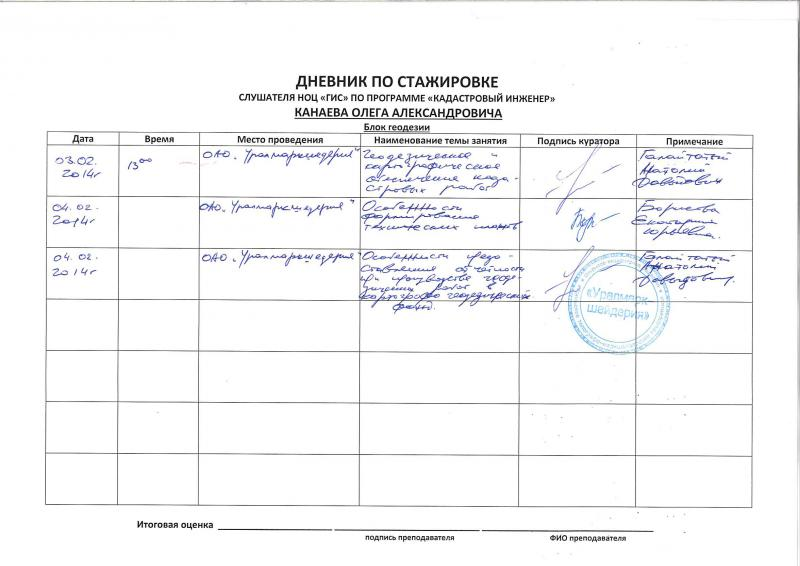 ДНЕВНИК ПО СТАЖИРОВКЕ
СЛУШАТЕЛЯ НОЦ «ГИС» ПО ПРОГРАММЕ «КАДАСТРОВЫЙ ИНЖЕНЕР»
КАНАЕВА ОЛЕГА АЛЕКСАНДРОВИЧА
Блок геодезии
Дата Время Место проведения Наименование темы занятия Подпись куратора Примечание
03.02.
2014г
13 00
ОАО „Уралмаркшейдерия"
Геодезическое и
картографическое
обеспечение када-
стровых работ
Галайтатый
Анатолий
Давыдович
04.02.
2014г
ОАО „Уралмаркшейдерия"
Особенности
формирования
технических планов
Борисова
Екатерина
Юрьевна.
04.02.
2014г
ОАО „Уралмаркшейдерия"
Особенности предо-
ставления отчетности
при производстве геоде-
зических работ в
картографо геодезический
фонд.
Галайтатый
Анатолий
Давыдович.
«Уралмарк-
шейдерия»
Итоговая оценка
подпись преподавателя ФИО преподавателя